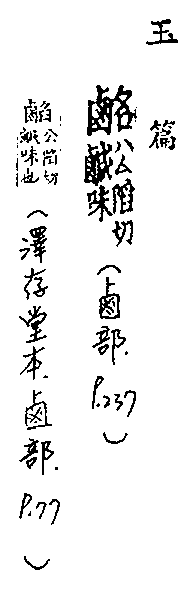 玉篇
公陷切鹹味(鹵部.P.237)
公陷切鹹味也(澤存堂本.鹵部.P.77)